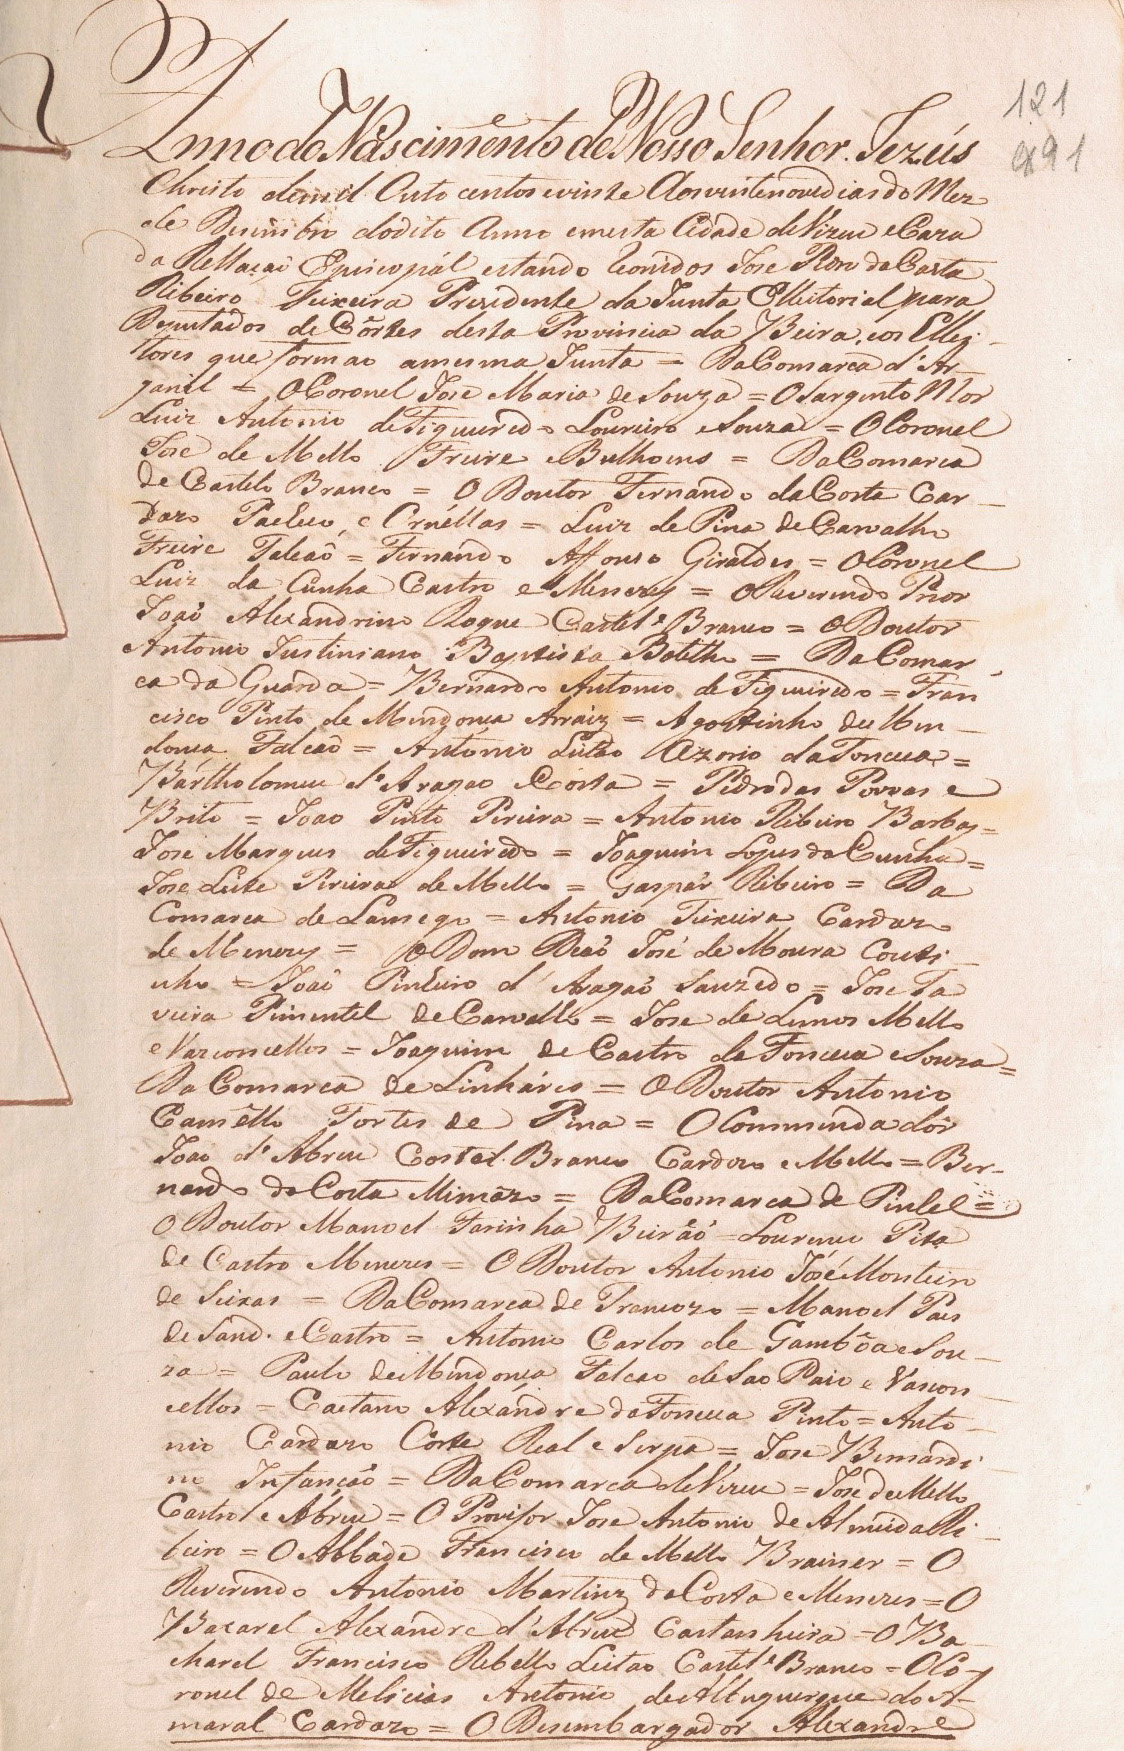 121
491
Anno do Nascimento de Nosso Senhor. Jezús
Christo demil Outo centos evinte Aosvintenovediasdo Mez
de Desembro dodito Anno emesta Cidade deVizeu eCaza
da Rellaçaõ Episcopál estando Reunidos José Rõn daCosta
Ribeiro Teixeira Prezidente da Junta Elleitorial para
Deputados de Côrtes desta Provincia da Beira, eos Ellei-
tores que formaõ amesma Junta = DaComarca d'Ar-
ganil = OCoronel Jose Maria de Souza = OSargento Mór
Luiz Antonio deFigueiredo Loureiro eSouza = OCoronel
José de Mello Freire eBulhoens = DaComarca
de Castelo Branco = O Doutor Fernando daCosta Car-
dozo Pacheco, e Ornéllas = Luiz de Pina de Carvalho
Freire Falcaõ = Fernando Affonso Giraldes = OCoronel
Luiz da Cunha Castro e Menezes = OReverendo Prior
Joaõ Alexandrino Roque Castel.º Branco = O Doutor
Antonio Justiniano Baptista Botelho = DaComar
ca da Guarda = Bernardo Antonio de Figueiredo = Fran
cisco Pinto de Mendonça Arraiz = Agostinho deMen-
donça Falcaõ = António Leitão Ozorio daFonceca =
Bártholomeu d'Aragaõ eCosta = Pedrodas Povoas e
Brito = Joao Pinto Pereira = Antonio Ribeiro Barbas =
José Marques deFigueiredo = Joaquim Lopes daCunha =
José Leite Pereira de Mello = Gaspár Ribeiro = Da
Comarca de Lamego = Antonio Teixeira Cardozo
de Menezes = O Dom Deaõ José de Moura Couti-
nho = Joaõ Pinheiro d'Aragaõ Sauzedo = José Ta
veira Pimentel de Carvalho = José de Lemos Mello
eVazconcellos = Joaquim de Castro da Fonceca eSouza =
DaComarca de Linháres = O Doutor Antonio
Camêllo Fortes de Pina = OCommendador
Joao d'Abreu Castel.º Branco Cardozo eMello = Ber-
nardo daCosta Mimozo = DaComarca de Pinhel =
O Doutor Manoel Farinha Beiráo = Lourenço Pita
de Castro Menezes = O Doutor Antonio José Monteiro
de Seixas = DaComarca de Trancozo = Manoel Pais
de Sand.e eCastro = Antonio Carlos de Gambôa eSou-
za = Paulo deMendonça Falcao deSao Paio e Vascon-
cellos = Caetano Alexándre daFonceca Pinto = Anto-
nio Cardozo Côrte Real e Serpa = José Bernardi-
no Infanção = DaComarca deVizeu = José deMello
Castro e Abreu = O Provisor José Antonio de AlmeidaRi-
beiro = O Abbade Francisco de Mello Brainer = O
Reverendo Antonio Martinz daCosta eMenezes = O
Bacarel Alexandre d'Abreu Castanheira = OBa
charel Francisco Rebello Leitao Castel.º Branco = OCo-
ronel de Melicias Antonio deAlbuquerque doA-
maral Cardozo = O Desembargador Alexandre